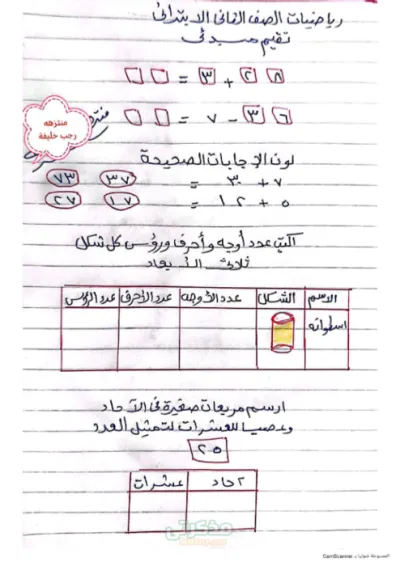 رياضيات الصف الثاني الابتدائي
تقيم مبدئي
٨ ٢ + ٣ = 
٦ ٣ - ٧ = 
منتزهه
رجب خليفة
لون الإجابات الصحيحة
٧ + ٣٠ = ٣٧ ٧٣
٥ + ١٢ = ١٧ ٢٧
اكتب عدد أوجه وأحرف ورؤس كل شكل
ثلاثي الأبعاد
الاسم الشكل عدد الأوجه عدد الأحرف عدد الرؤس
اسطوانه
ارسم مربعات صغيرة في الآحاد
وعصيا للعشرات لتمثيل العدد
٢٥
آحاد عشرات
مذكرتي
الممسوحة ضوئيا بـ CamScanner